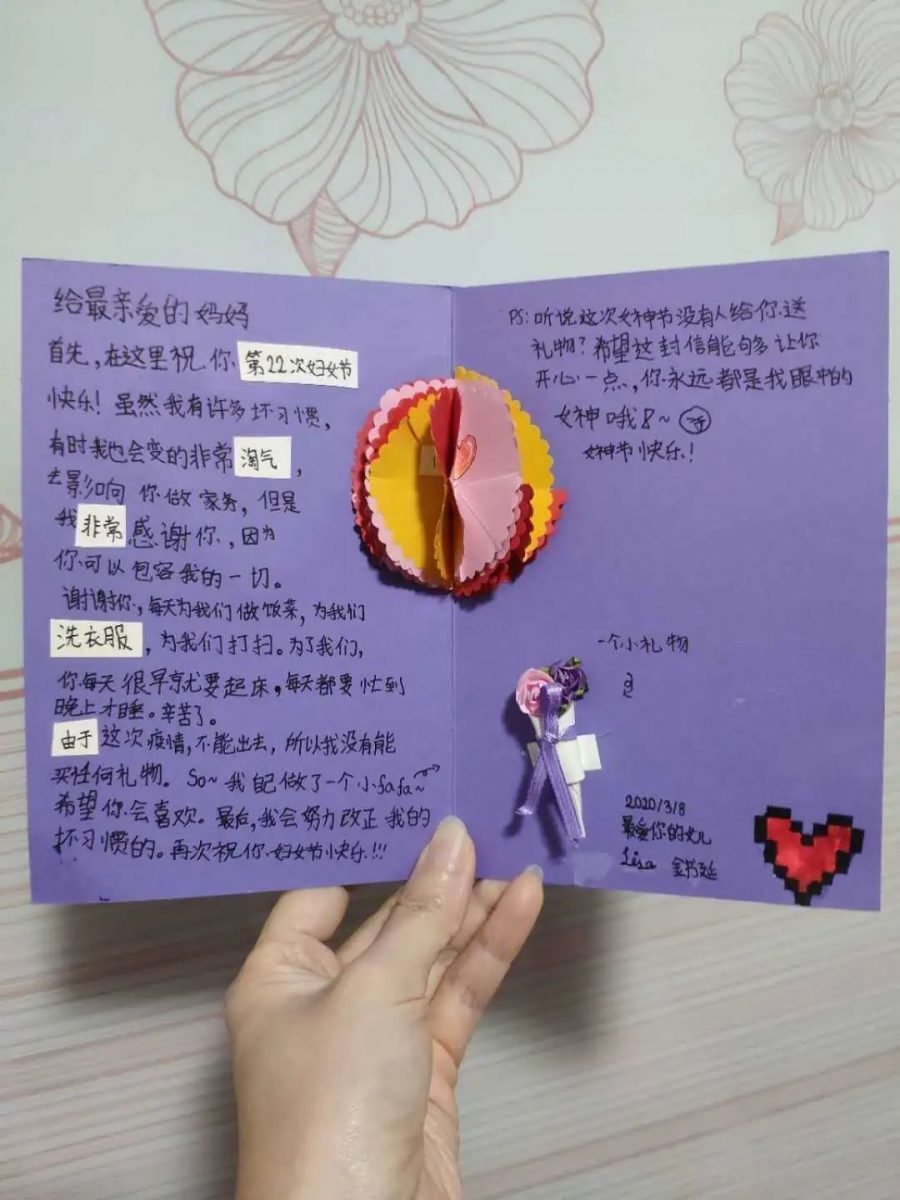 给最亲爱的妈妈
首先,在这里祝你 第22次妇女节
快乐!虽然我有许多坏习惯,
有时我也会变的非常 淘气,
去影响 你做家务,但是
我 非常 感谢你,因为
你可以包容我的一切。
谢谢你,每天为我们做饭菜,为我们
洗衣服,为我们打扫。为了我们,
你每天很早就要起床,每天都要忙到
晚上才睡。辛苦了。
由于 这次疫情,不能出去,所以我没有能
买任何礼物。So~ 我自己做了一个小fafa~
希望你会喜欢。最后,我会努力改正我的
坏习惯的。再次祝你妇女节快乐!!!
PS:听说这次女神节没有人给你送
礼物?希望这封信能够多让你
开心一点,你永远都是我眼中的
女神哦8~
女神节快乐!
一个小礼物
2020/3/8
最爱你的女儿
Lisa